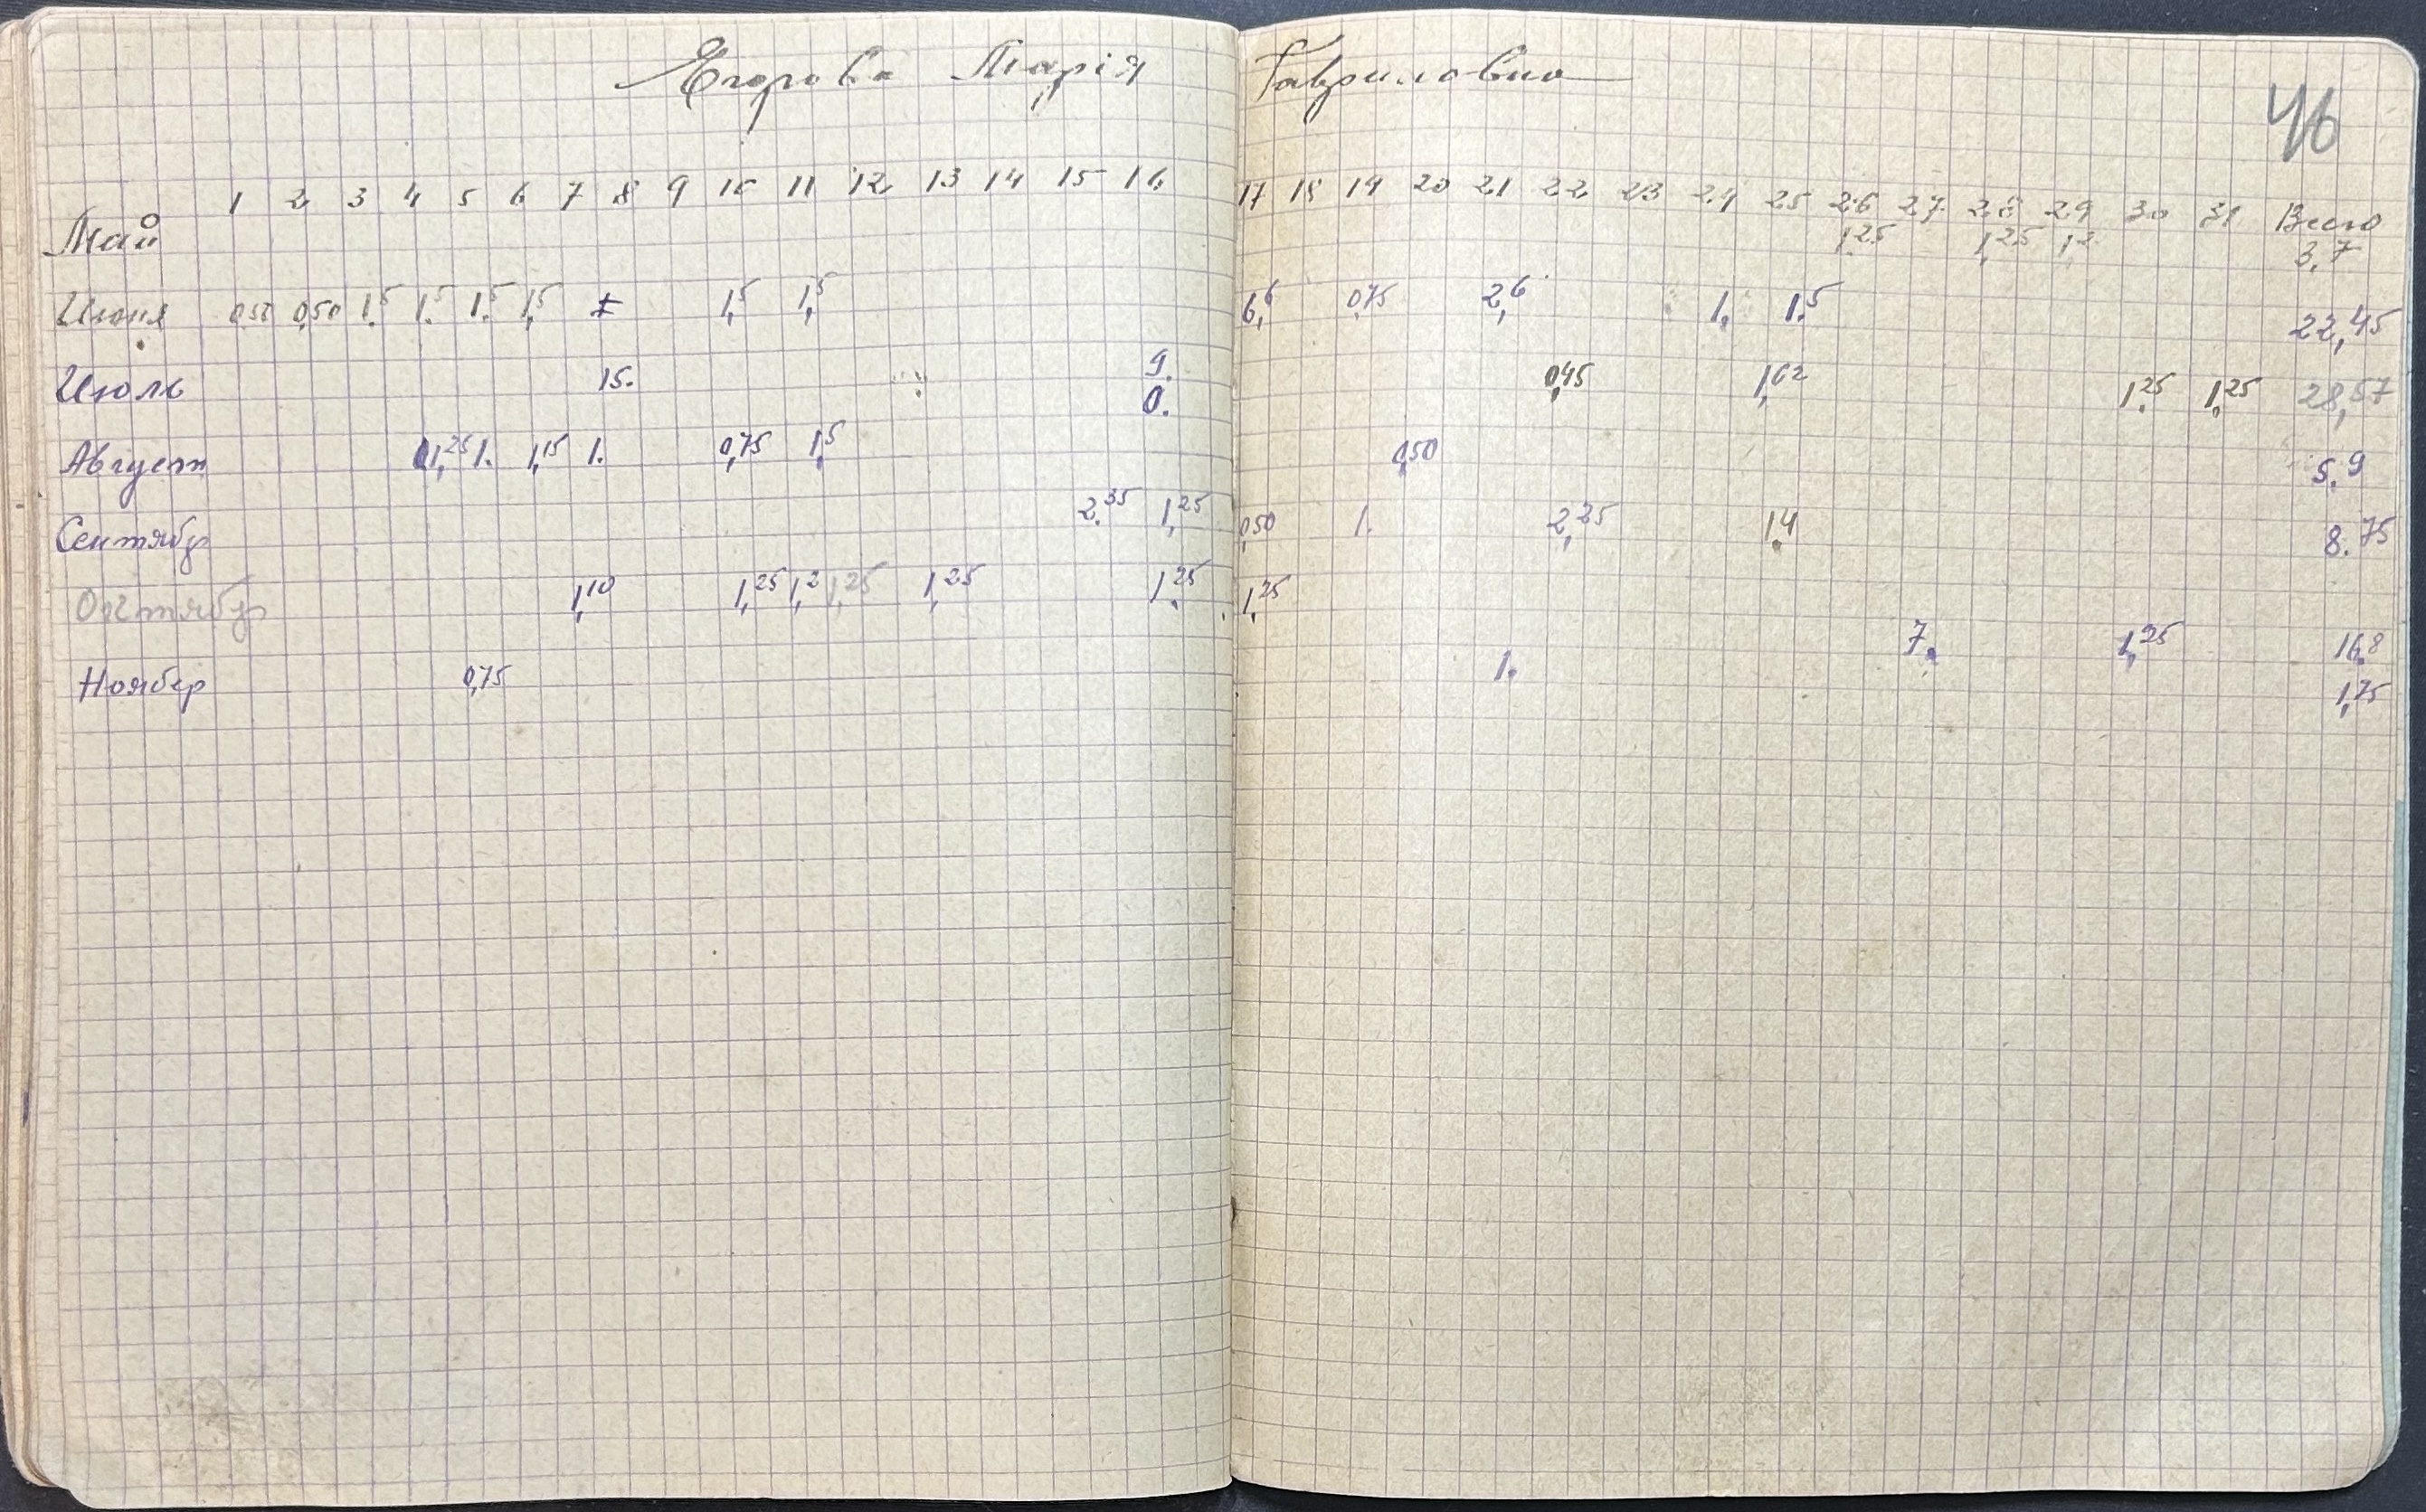 Егорова Марія Гавриловна
46
1 2 3 4 5 6 7 8 9 10 11 12 13 14 15 16 17 18 19 20 21 22 23 24 25 26 27 28 29 30 31 Всего
Май 1,25 1,25 1,2 3,7
Июня 0,50 0,50 1,5 1,5 1,5 1,5 1,5 1,5 6,6 0,75 2,6 1, 1,5 22,45
Июль 15. 9. 0. 0,45 1,62 1,25 1,25 28,57
Август 1,25 1. 1,15 1. 0,75 1,5 0,50 5,9
Сентябр 2,35 1,25 0,50 1. 2,25 1,4 8.75
Октябр 1,10 1,25 1,2 1,25 1,25 1,25 1,25 7. 1,25 16,8
Ноябер 0,75 1. 1,75